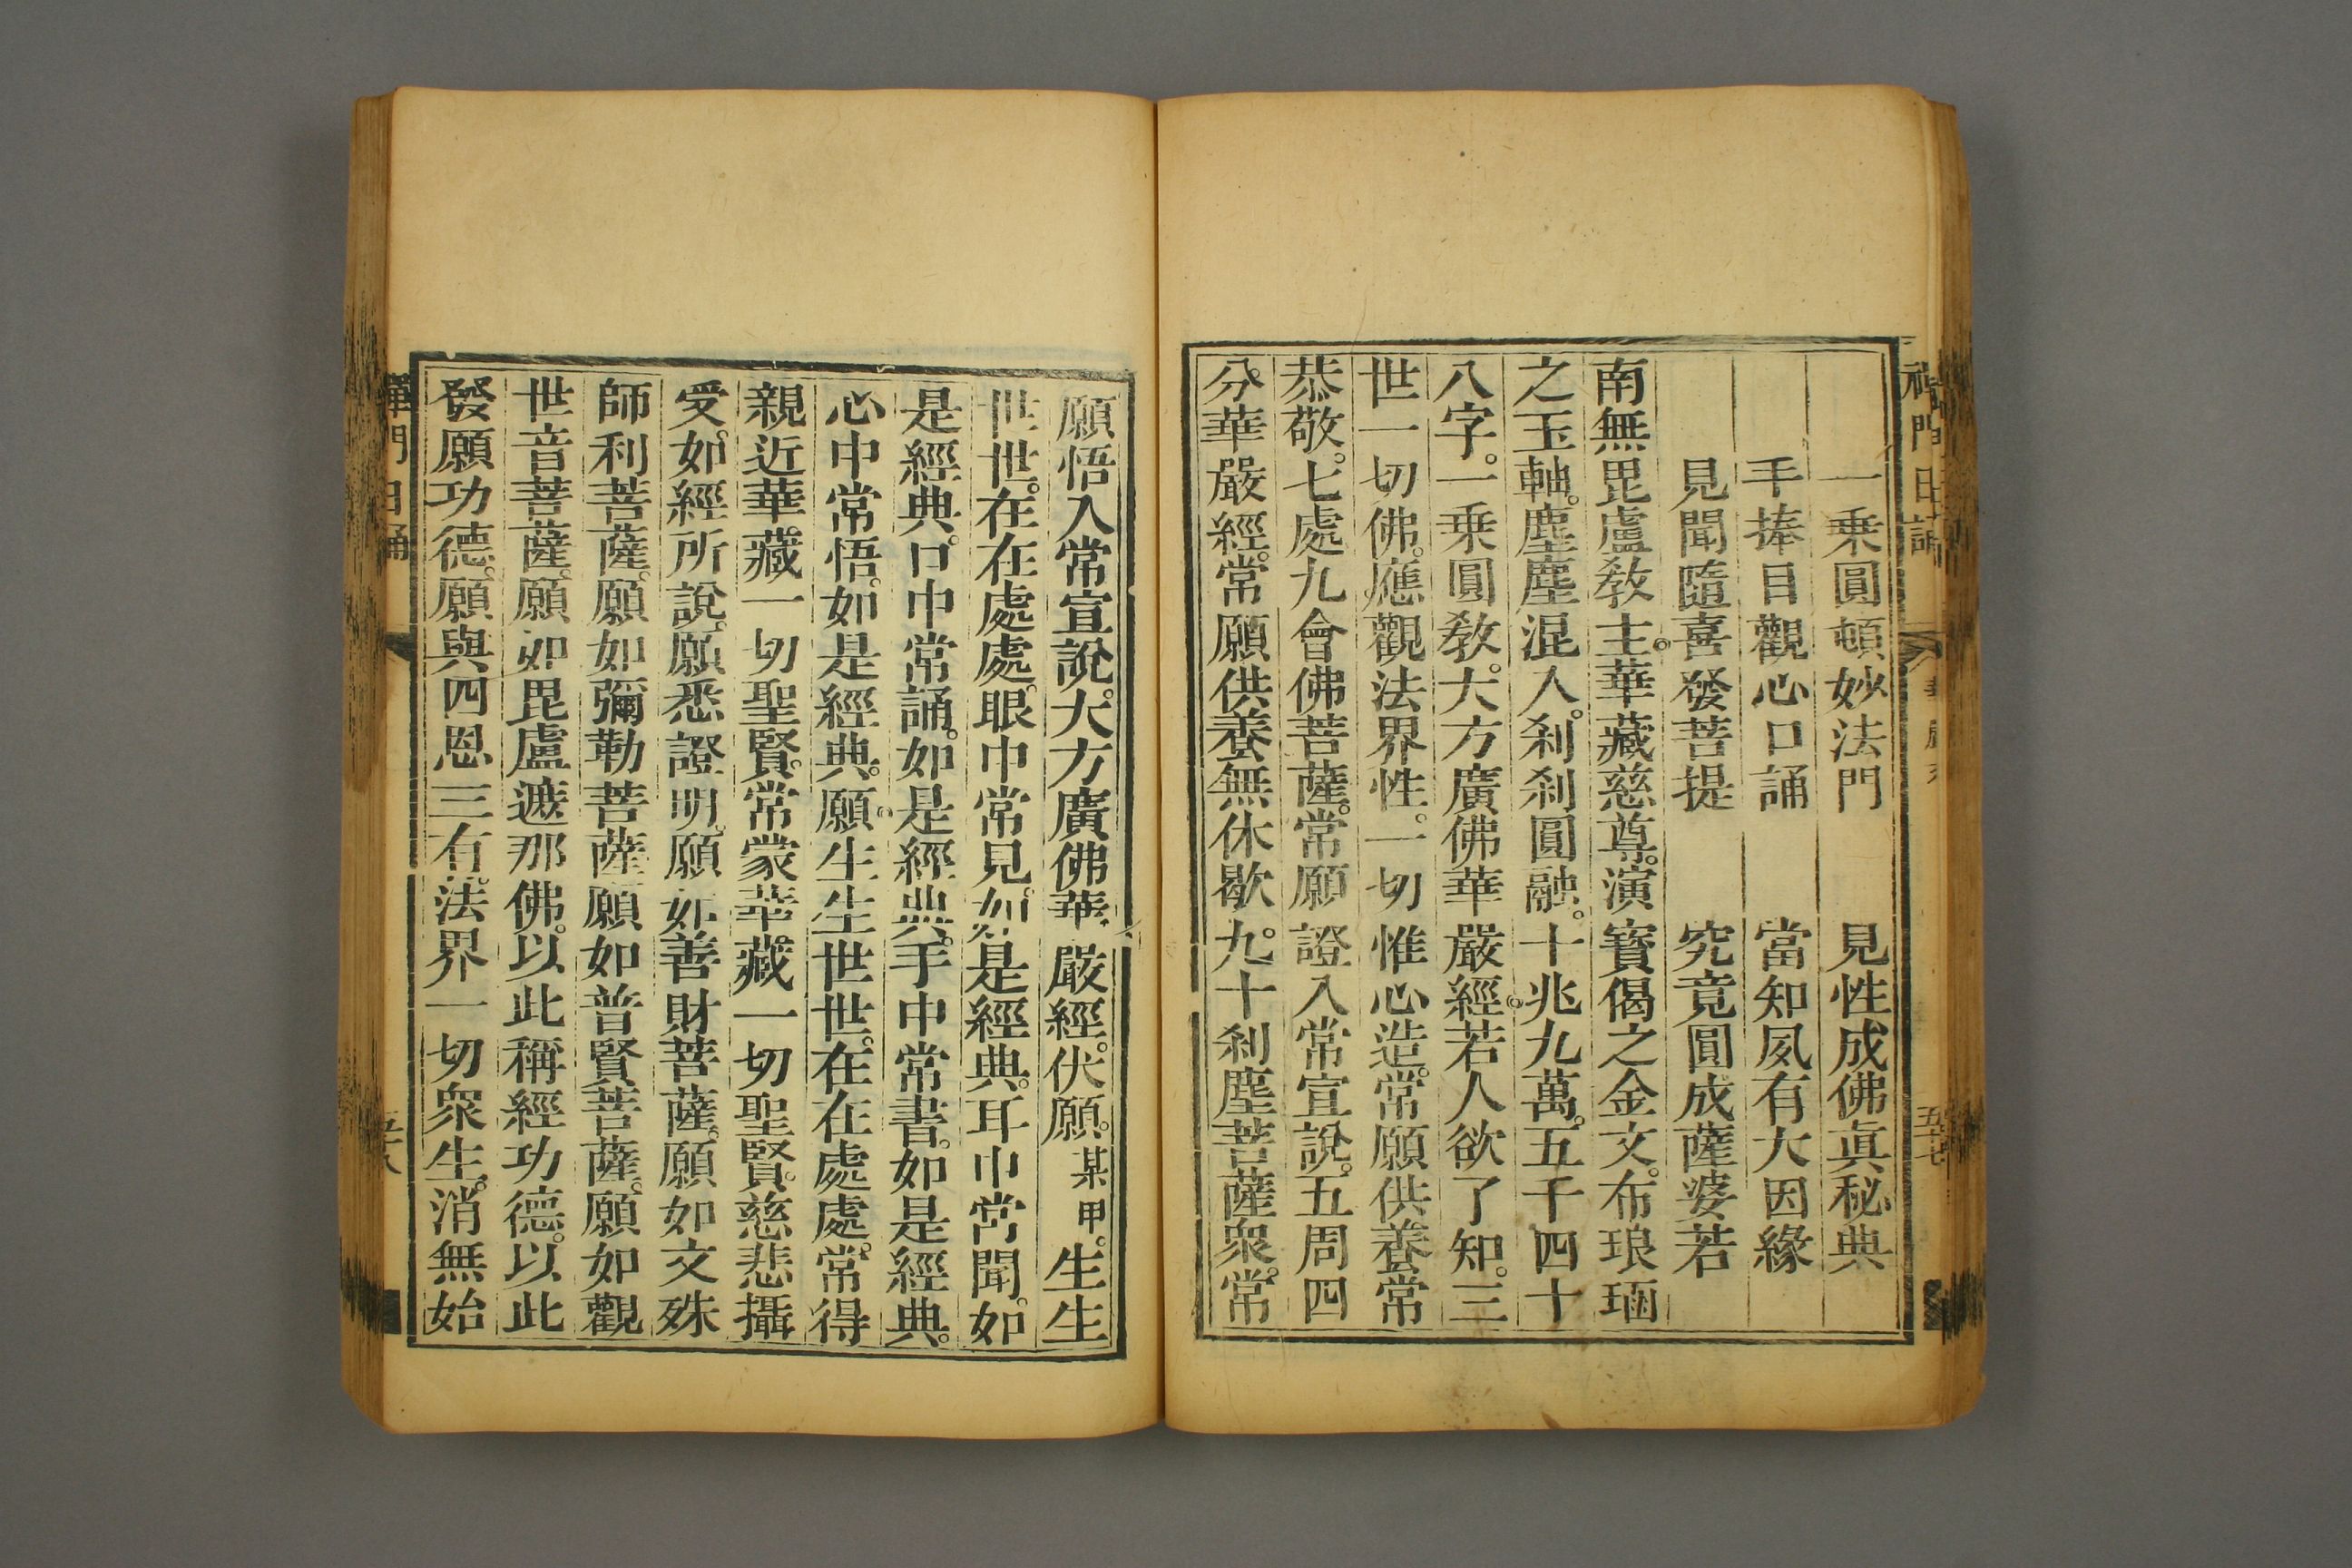 禪門日誦
華嚴文
五十七
一乘圓頓妙法門　見性成佛眞秘典
手捧目觀心口誦　當知夙有大因緣
見聞隨喜發菩提　究竟圓成薩婆若
南無毘盧敎主。華藏慈尊。演寶偈之金文。布琅函
之玉軸。塵塵混入。刹刹圓融。十兆九萬。五千四十
八字。一乘圓敎。大方廣佛華嚴經。若人欲了知。三
世一切佛。應觀法界性。一切惟心造。常願供養常
恭敬。七處九會佛菩薩。常願證入常宣說。五周四
分。華嚴經。常願供養無休歇。九十刹塵菩薩衆。常
願悟入常宣說。大方廣佛華嚴經。伏願。某甲。生生
世世。在在處處。眼中常見。如是經典。耳中常聞。如
是經典。口中常誦。如是經典。手中常書。如是經典。
心中常悟。如是經典。願生生世世。在在處處。常得
親近華藏一切聖賢。常蒙華藏一切聖賢。慈悲攝
受。如經所說。願悉證明。願如善財菩薩。願如文殊
師利菩薩。願如彌勒菩薩。願如普賢菩薩。願如觀
世音菩薩。願如毘盧遮那佛。以此稱經功德。以此
發願功德。願與四恩三有。法界一切衆生。消無始
禪門日誦
五十八